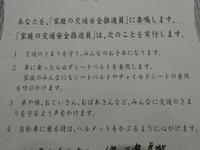 あなたを、「家庭の交通安全推進員」に委嘱します。
「家庭の交通安全推進員」は、次のことを実行します。
1 交通のきまりを守り、みんなのお手本になります。
2 車に乗ったら必ずシートベルトを着用します。
家族のみんなにもシートベルトやチャイルドシートの着用
を呼びかけます。
3 弟や妹、おじいさん、おばあさんなど、みんなに交通のきまり
を守るよう声をかけます。
4 自転車に乗る時は、ヘルメットをかぶるように心がけます。